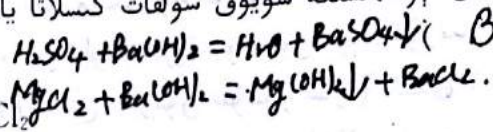 سولفات
H₂SO₄ + Ba(OH)₂ = H₂O + BaSO₄↓; B
MgCl₂ + Ba(OH)₂ = Mg(OH)₂↓ + BaCl₂.